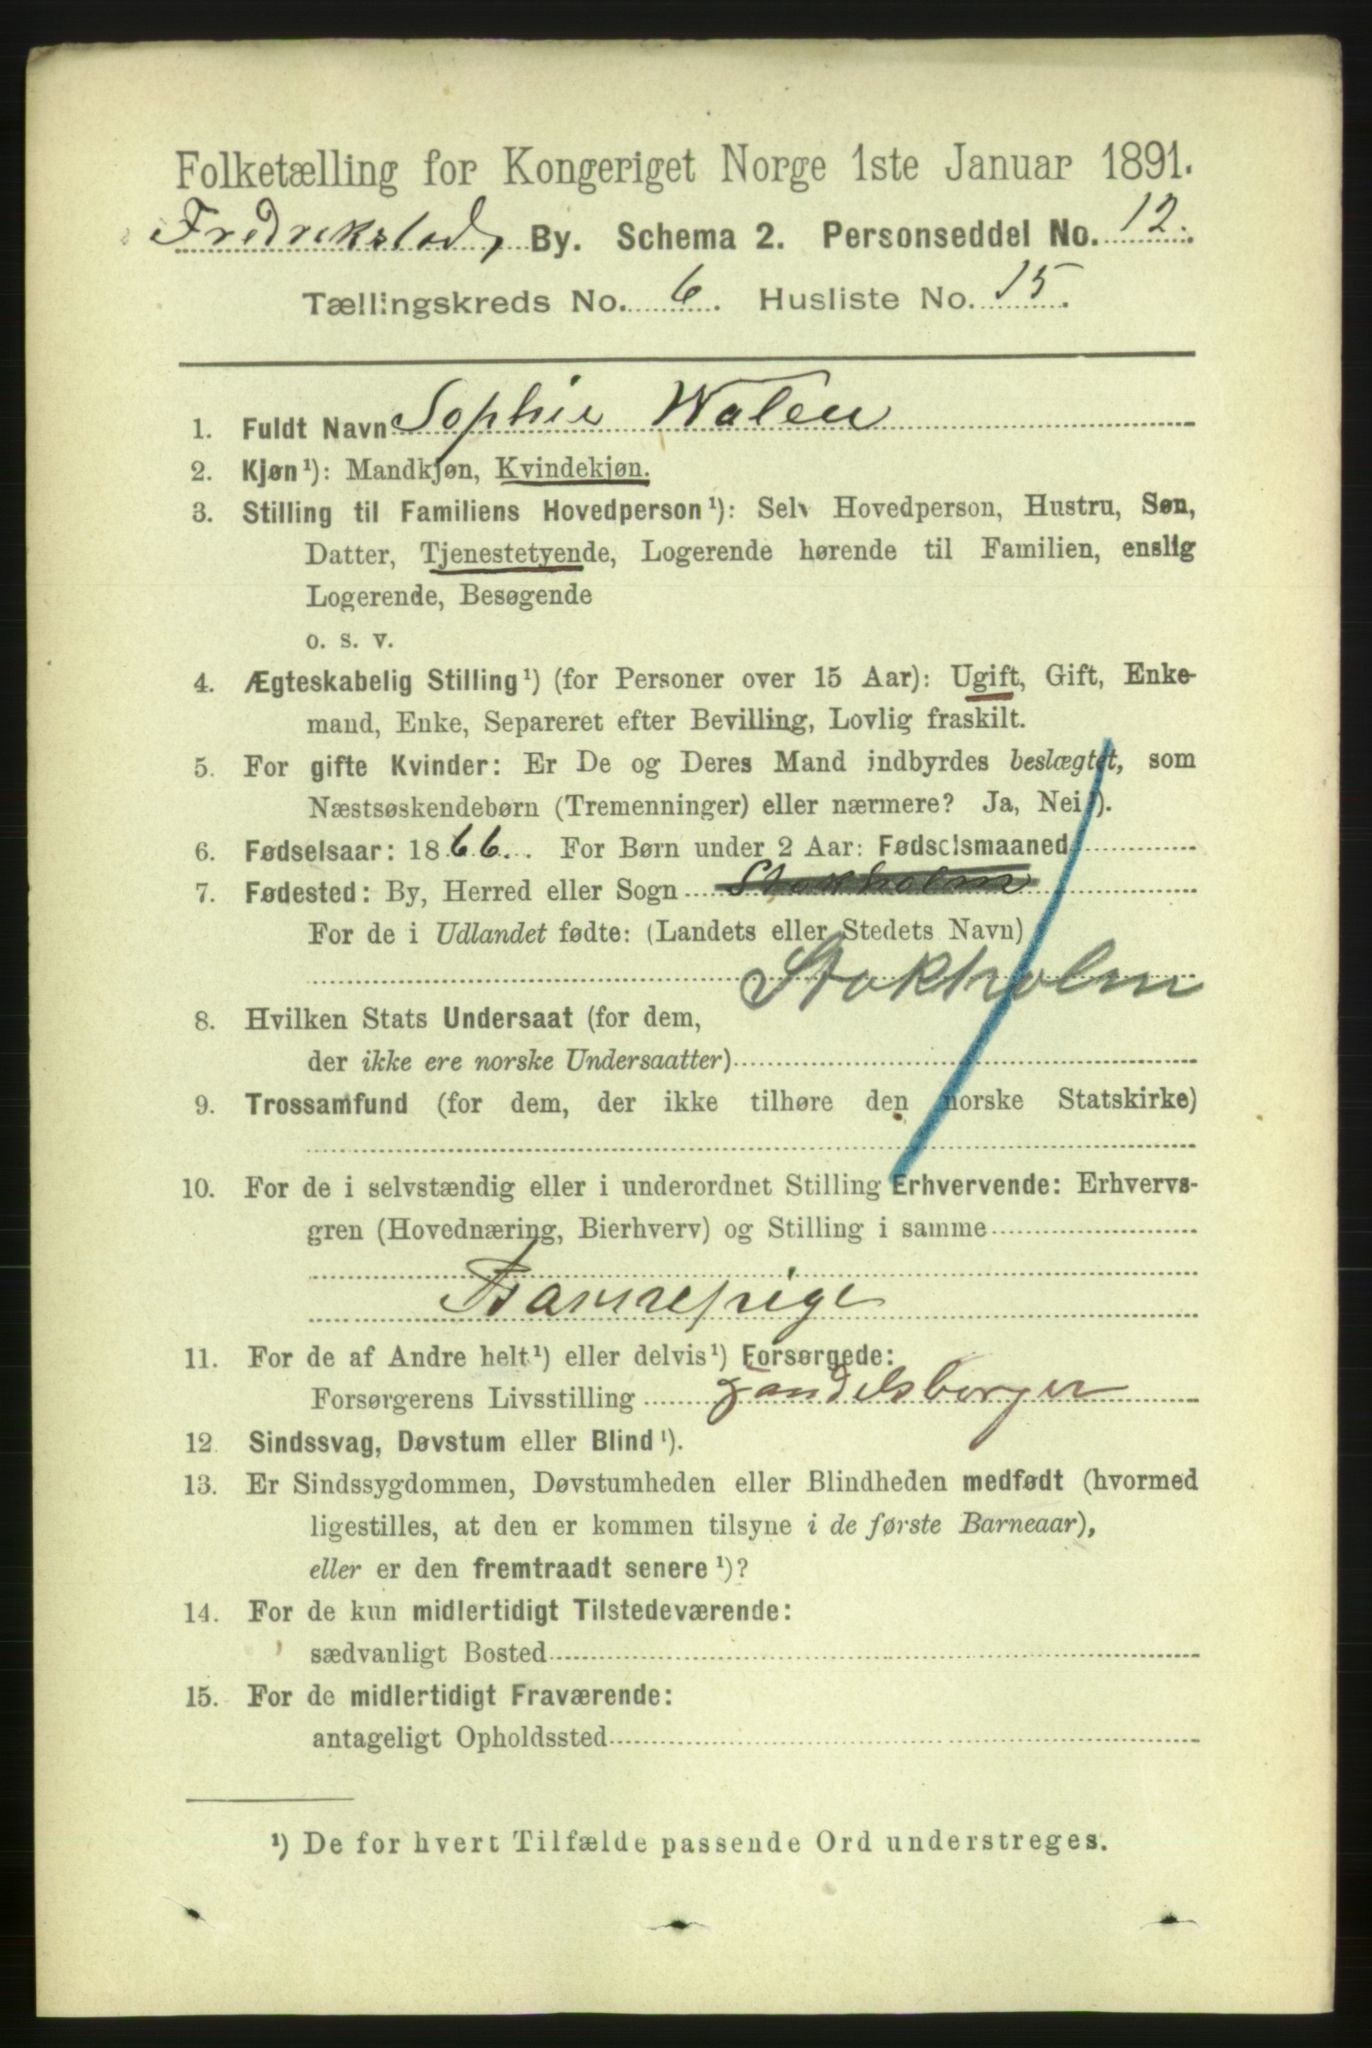 Folketælling for Kongeriget Norge 1ste Januar 1891.
Fredrikstad, By. Schema 2. Personseddel No. 12.
Tællingskreds No. 6. Husliste No. 15.
1. Fuldt Navn Sophie Walen
2. Kjøn¹): Mandkjøn, Kvindekjøn.
3. Stilling til Familiens Hovedperson¹): Selv Hovedperson, Hustru, Søn,
Datter, Tjenestetyende, Logerende hørende til Familien, enslig
Logerende, Besøgende
o. s. v.
4. Ægteskabelig Stilling¹) (for Personer over 15 Aar): Ugift, Gift, Enke-
mand, Enke, Separeret efter Bevilling, Lovlig fraskilt.
5. For gifte Kvinder: Er De og Deres Mand indbyrdes beslægtet, som
Næstsøskendebørn (Tremenninger) eller nærmere? Ja, Nei¹).
6. Fødselsaar: 1866. For Børn under 2 Aar: Fødselsmaaned
7. Fødested: By, Herred eller Sogn Stokholm
For de i Udlandet fødte: (Landets eller Stedets Navn)
Stokholm
8. Hvilken Stats Undersaat (for dem,
der ikke ere norske Undersaatter)
9. Trossamfund (for dem, der ikke tilhøre den norske Statskirke)
10. For de i selvstændig eller i underordnet Stilling Erhvervende: Erhvervs-
gren (Hovednæring, Bierhverv) og Stilling i samme
Barnepige
11. For de af Andre helt¹) eller delvis¹) Forsørgede:
Forsørgerens Livsstilling Handelsborger
12 Sindssvag, Døvstum eller Blind¹).
13. Er Sindssygdommen, Døvstumheden eller Blindheden medfødt (hvormed
ligestilles, at den er kommen tilsyne i de første Barneaar),
eller er den fremtraadt senere¹)?
14. For de kun midlertidigt Tilstedeværende:
sædvanligt Bosted
15. For de midlertidigt Fraværende:
antageligt Opholdssted
¹) De for hvert Tilfælde passende Ord understreges.